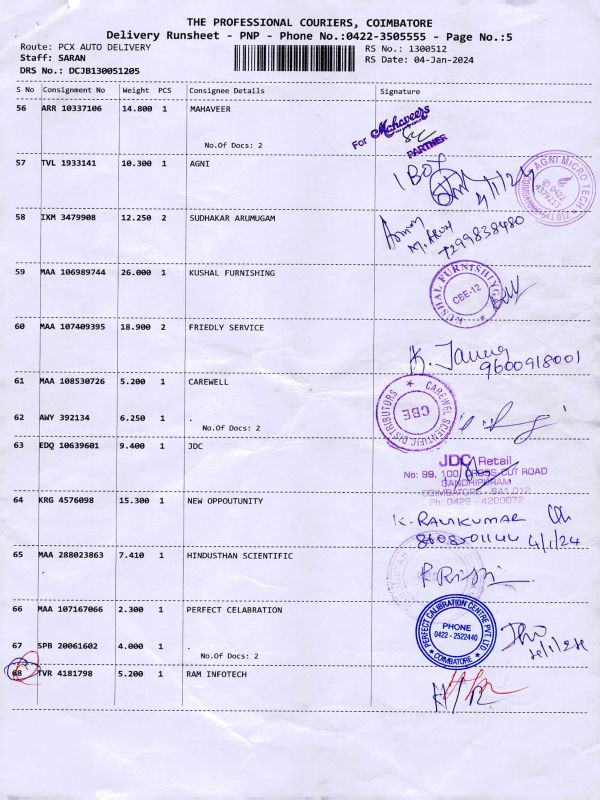 THE PROFESSIONAL COURIERS, COIMBATORE
Delivery Runsheet - PNP - Phone No.:0422-3505555 - Page No.:5
Route: PCX AUTO DELIVERY RS No.: 1300512
Staff: SARAN RS Date: 04-Jan-2024
DRS No.: DCJB130051205
S No Consignment No Weight PCS Consignee Details Signature
56 ARR 10337106 14.800 1 MAHAVEER
For Mahaveers
PARTNER
No.Of Docs: 2
57 TVL 1933141 10.300 1 AGNI
1 BOX
4/1/24
AGNI MICRO TECH
0422
58 IXM 3479908 12.250 2 SUDHAKAR ARUMUGAM
M. ARUN
7299838480
59 MAA 106989744 26.000 1 KUSHAL FURNISHING
KUSHAL FURNISHING
CBE-12
60 MAA 107409395 18.900 2 FRIEDLY SERVICE
9600918001
61 MAA 108530726 5.200 1 CAREWELL
CAREWEL SCIENTIFIC DISTRIBUTORS
CBE
62 AWY 392134 6.250 1 .
No.Of Docs: 2
63 EDQ 10639601 9.400 1 JDC
JDC Retail
No: 99, 100, CROSS CUT ROAD
GANDHIPURAM
COIMBATORE - 641 012
Ph: 0422 - 4200072
64 KRG 4576098 15.300 1 NEW OPPOUTUNITY
K. RAVIKUMAR
8608501144 4/1/24
65 MAA 288023863 7.410 1 HINDUSTHAN SCIENTIFIC
66 MAA 107167066 2.300 1 PERFECT CELABRATION
PERFECT CALIBRATION CENTRE PVT LTD
PHONE
0422 - 2522440
COIMBATORE
67 SPB 20061602 4.000 1 .
No.Of Docs: 2
68 TVR 4181798 5.200 1 RAM INFOTECH